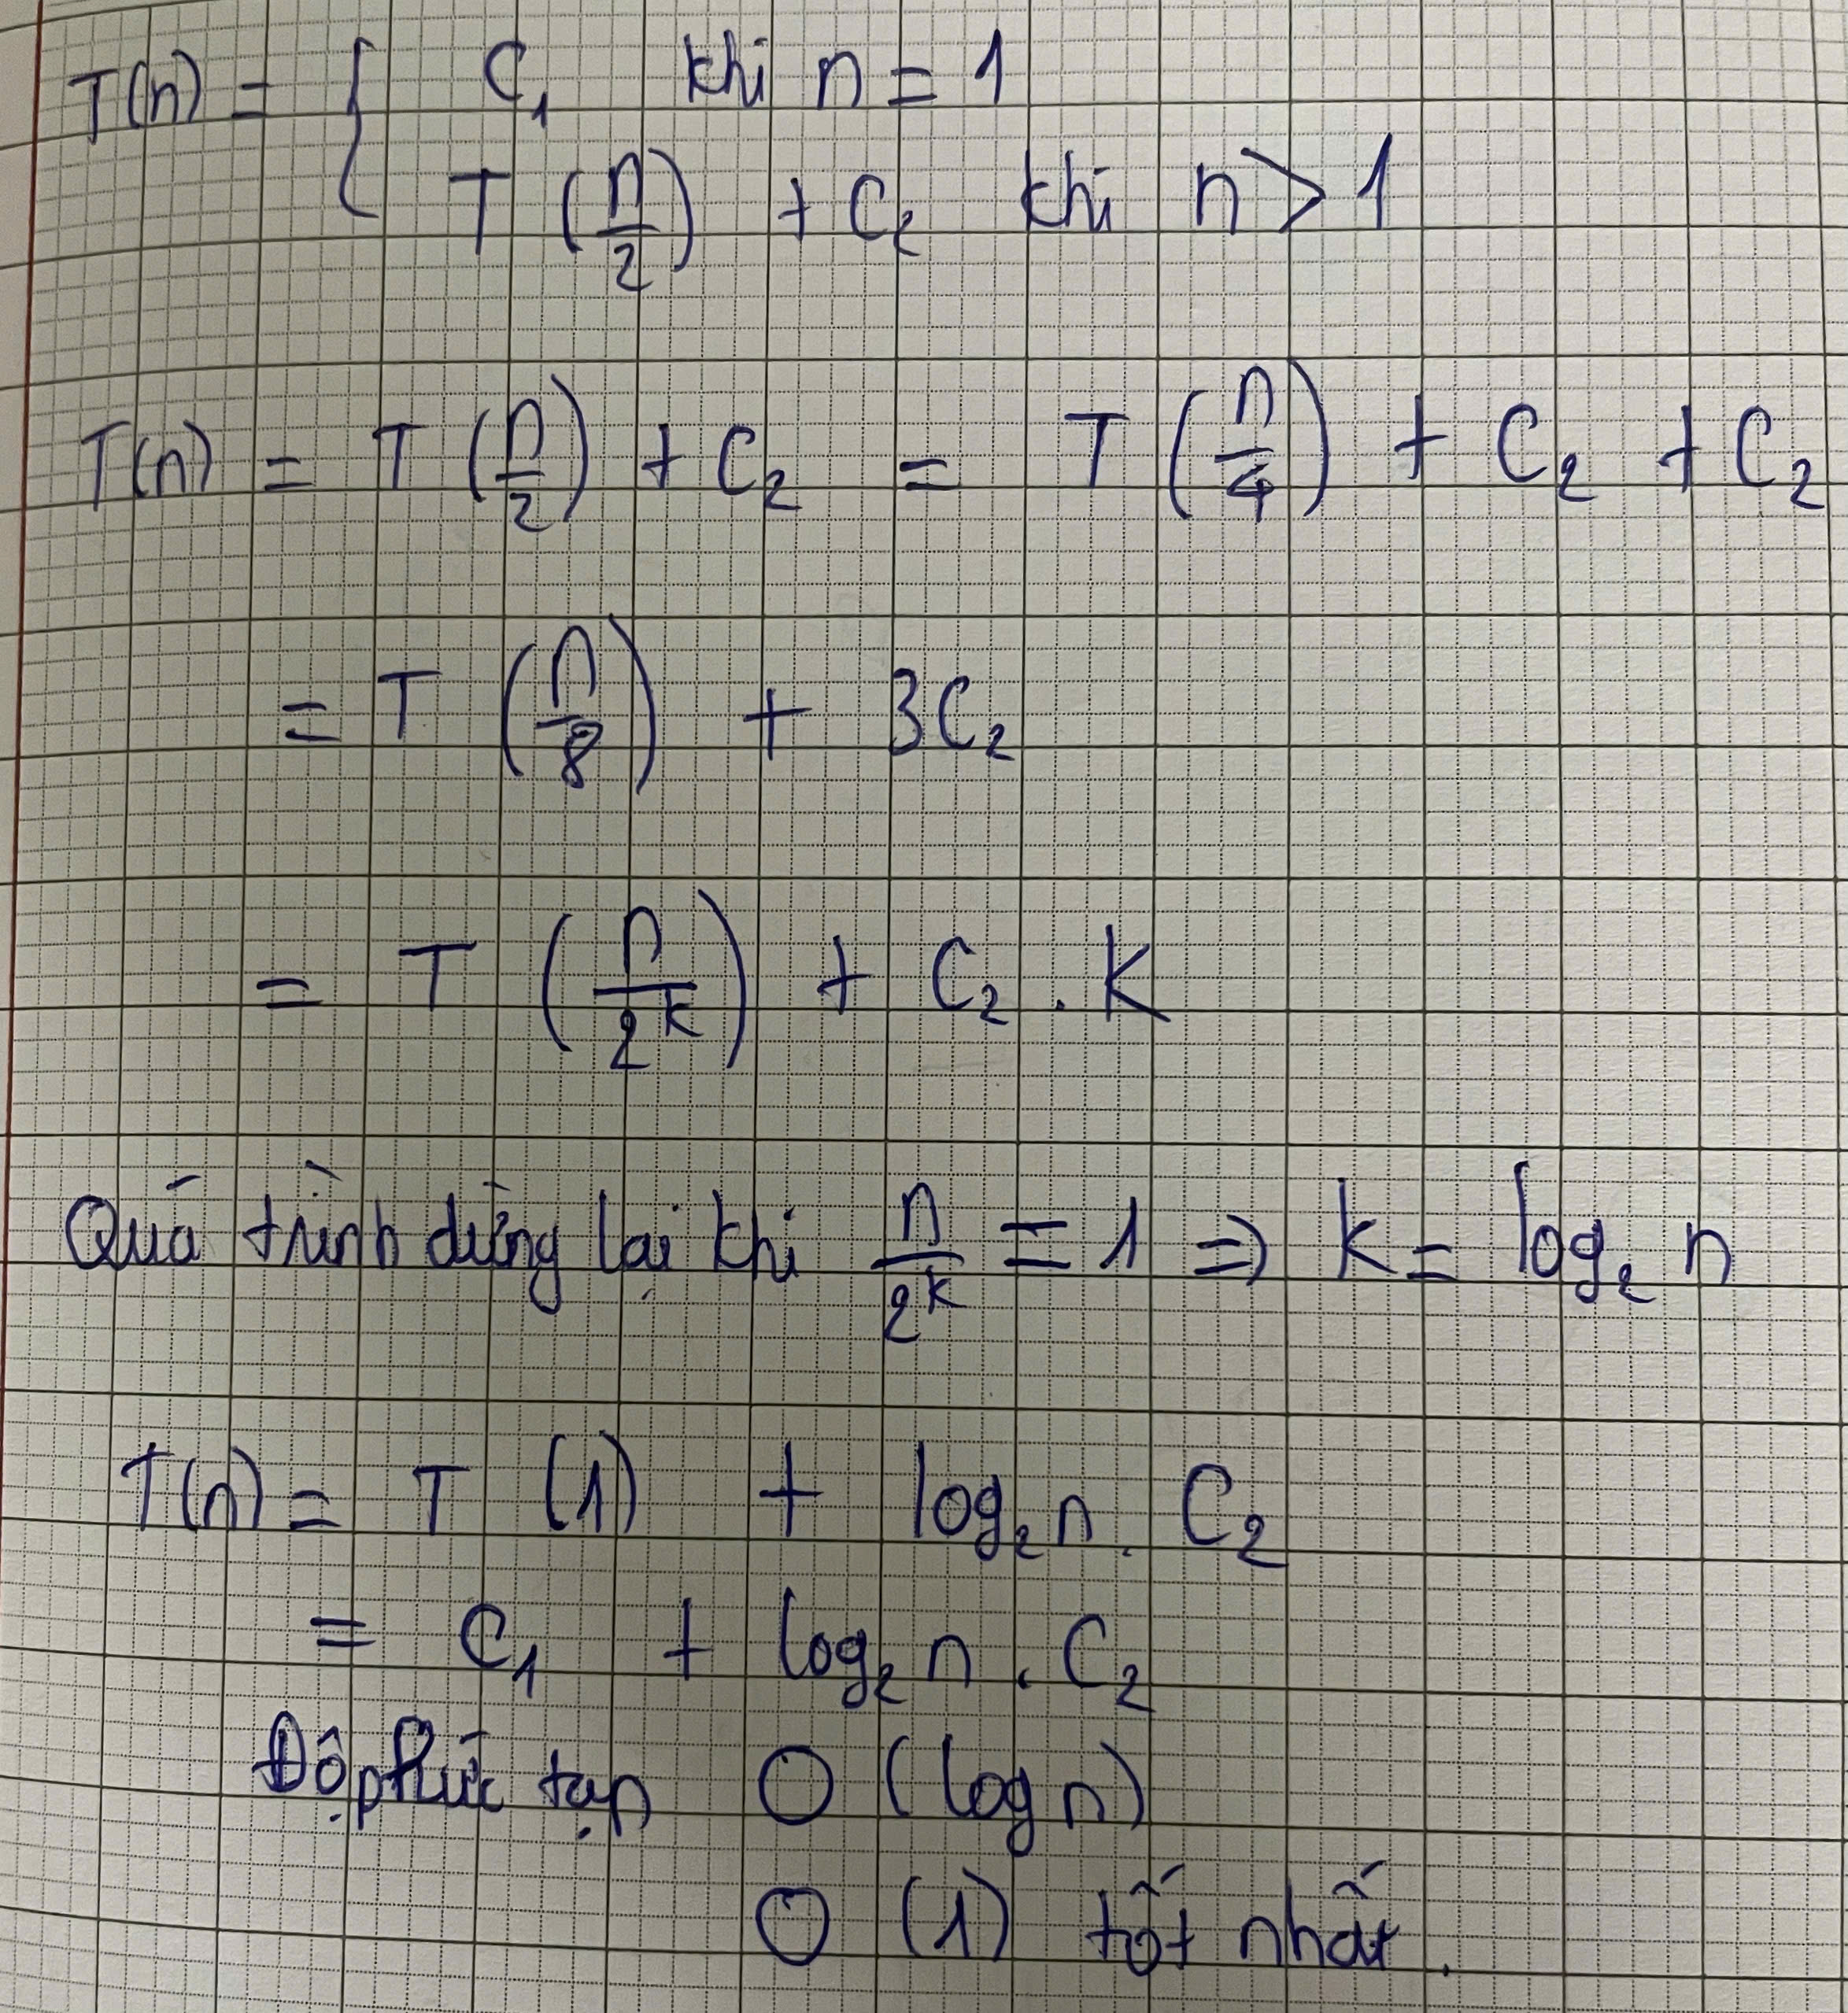 T(n) = { C₁ khi n = 1
T (n/2) + C₂ khi n > 1
T(n) = T (n/2) + C₂ = T (n/4) + C₂ + C₂
= T (n/8) + 3C₂
= T (n/2^k) + C₂ . K
Quá trình dừng lại khi n/2^k = 1 ⇒ k = log₂ n
T(n) = T (1) + log₂ n . C₂
= C₁ + log₂ n . C₂
Độ phức tạp O (log n)
O (1) tốt nhất .